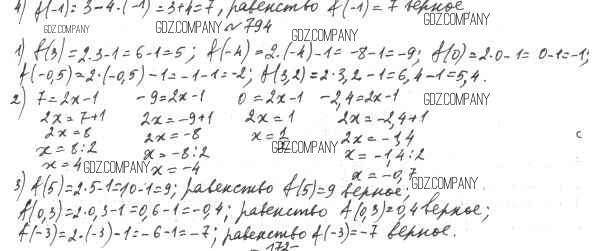 4) f(-1) = 3-4·(-1) = 3+4=7, равенство f(-1)=7 верное
GDZ.COMPANY
GDZ.COMPANY № 794
GDZ.COMPANY
GDZ.COMPANY
1) f(3)=2·3-1=6-1=5; f(-4)=2·(-4)-1=-8-1=-9; f(0)=2·0-1=0-1=-1;
f(-0,5)=2·(-0,5)-1=-1-1=-2; f(3,2)=2·3,2-1=6,4-1=5,4.
2) 7=2x-1 -9=2x-1 0=2x-1 -2,4=2x-1 GDZ.COMPANY
2x=7+1 2x=-9+1 2x=1 2x=-2,4+1
2x=8 2x=-8 x=1/2 2x=-1,4
GDZ.COMPANY
x=8:2 x=-8:2 x=-1,4:2
x=4 GDZ.COMPANY x=-4 x=-0,7
3) f(5)=2·5-1=10-1=9; равенство f(5)=9 верное; GDZ.COMPANY
f(0,3)=2·0,3-1=0,6-1=-0,4; равенство f(0,3)=0,4 верное;
f(-3)=2·(-3)-1=-6-1=-7; равенство f(-3)=-7 верное.
-172-